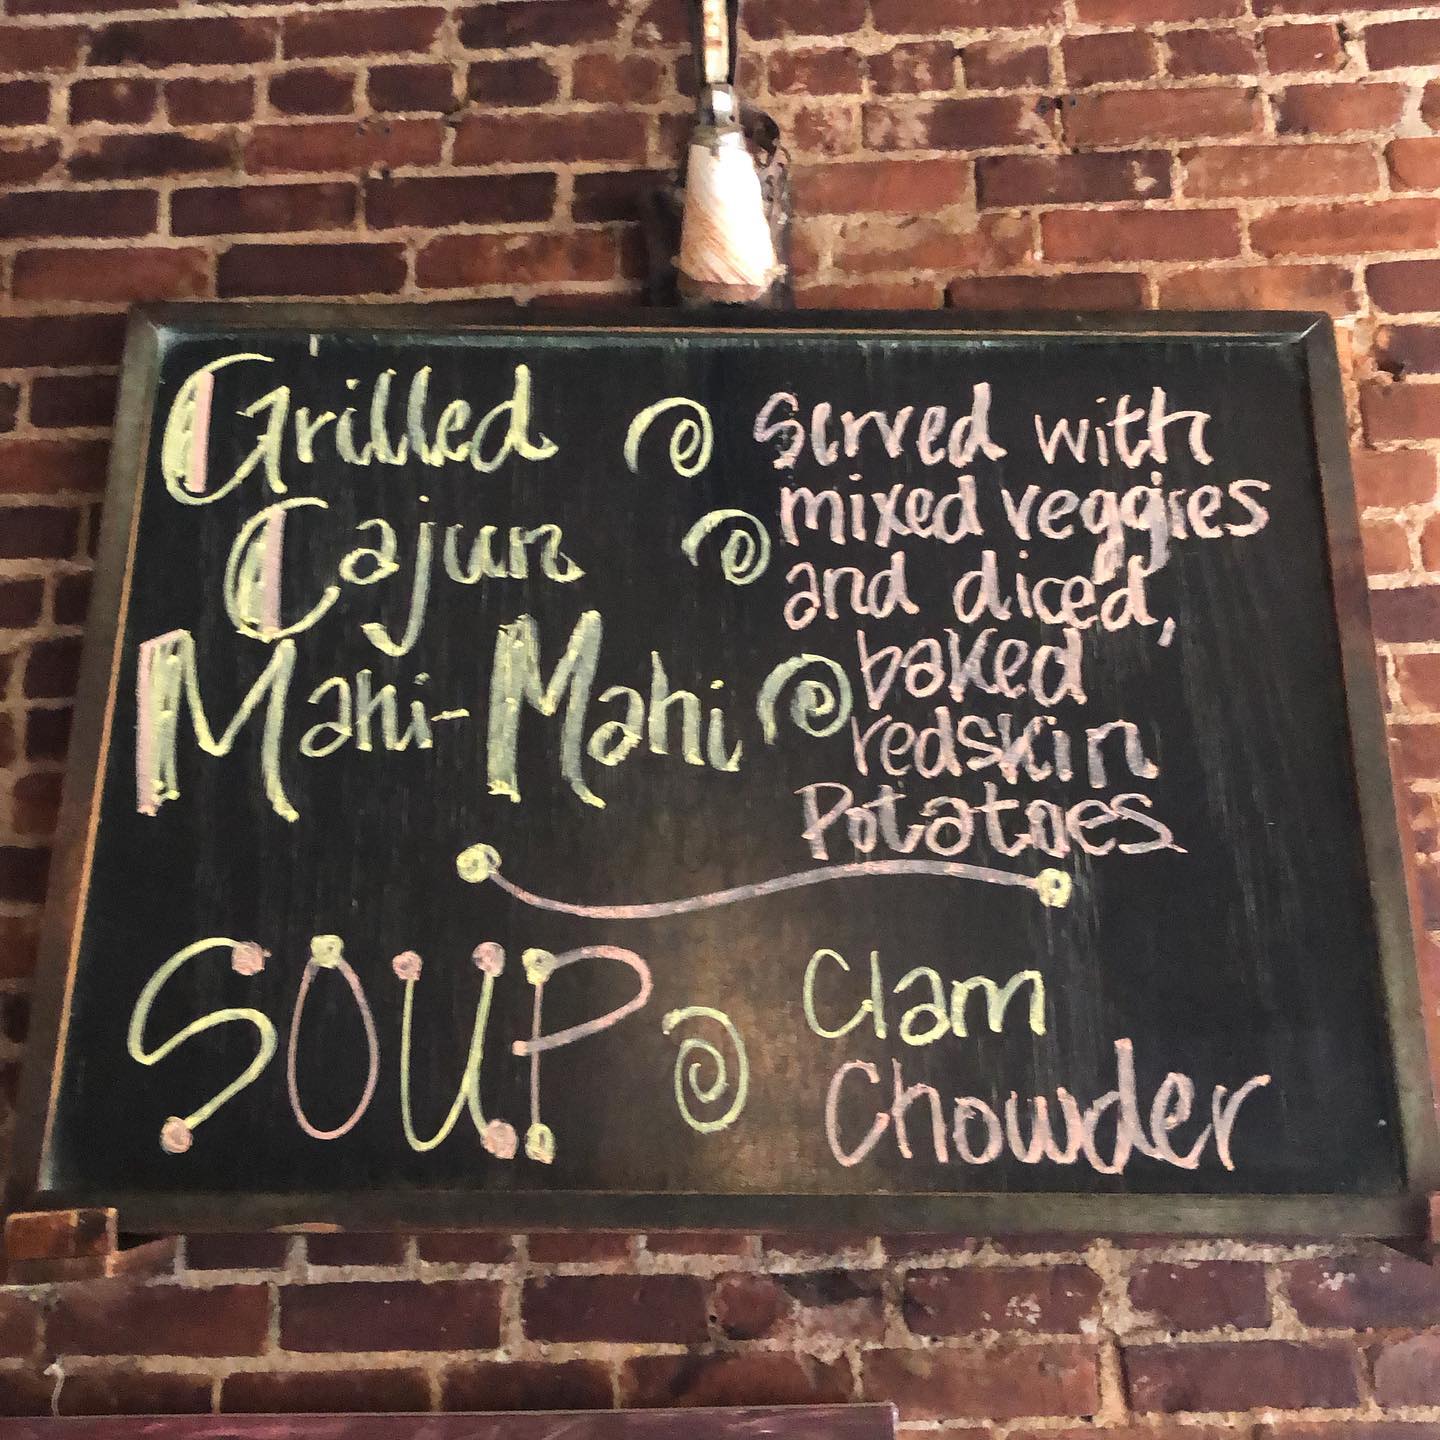 Grilled
Cajun
Mahi-Mahi
Served with
mixed veggies
and diced,
baked
redskin
Potatoes
SOUP
Clam
Chowder